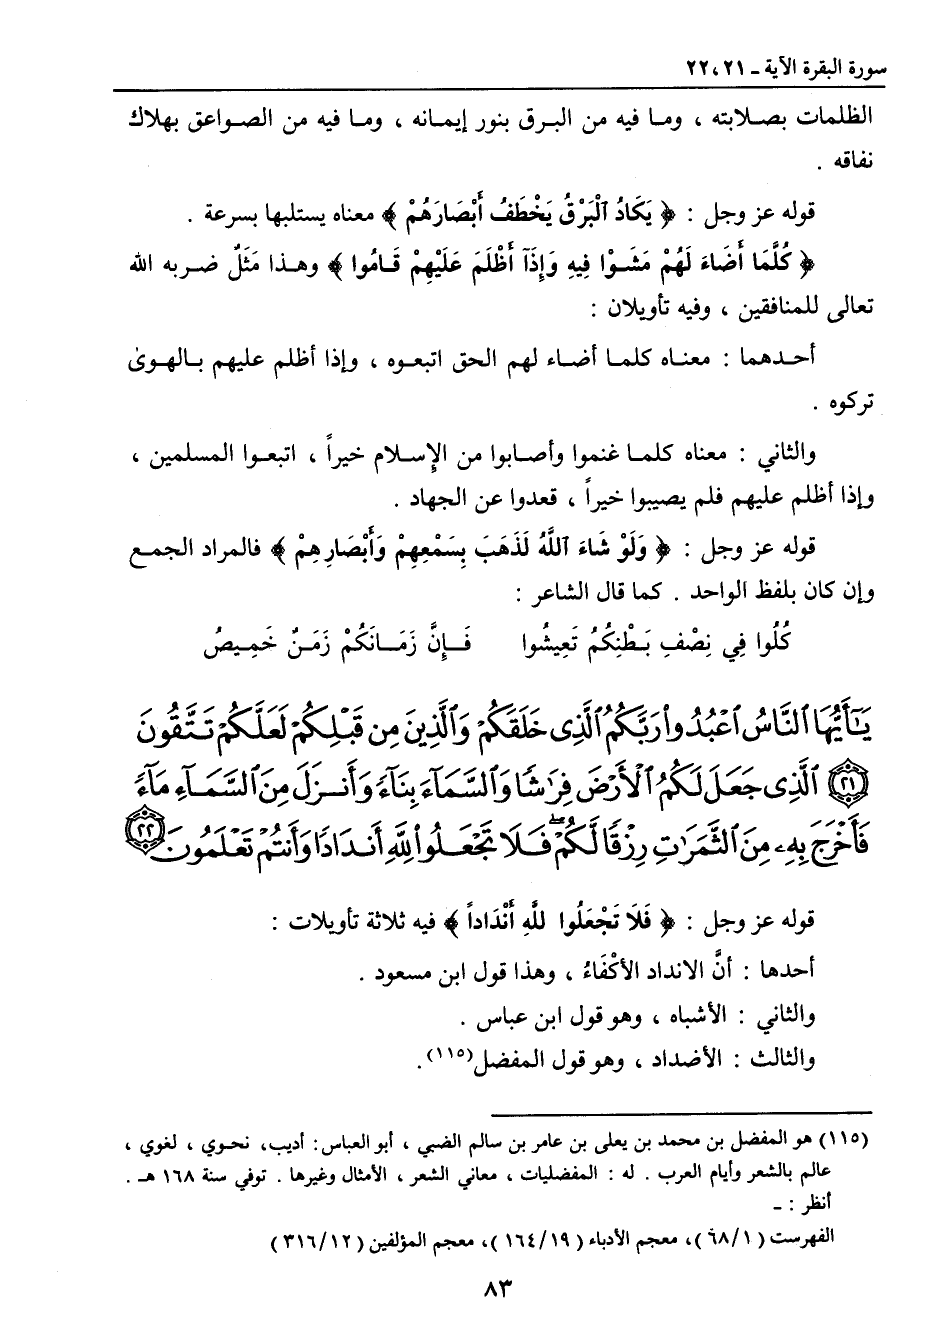 سورة البقرة الآية ـ ٢١،٢٢
الظلمات بصلابته ، وما فيه من البرق بنور إيمانه ، وما فيه من الصواعق بهلاك
نفاقه .
قوله عز وجل : ﴿ يَكَادُ الْبَرْقُ يَخْطَفُ أَبْصَارَهُمْ ﴾ معناه يستلبها بسرعة .
﴿ كُلَّمَا أَضَاءَ لَهُمْ مَشَوْا فِيهِ وَإِذَآ أَظْلَمَ عَلَيْهِمْ قَامُوا ﴾ وهذا مَثَلٌ ضربه الله
تعالى للمنافقين ، وفيه تأويلان :
أحدهما : معناه كلما أضاء لهم الحق اتبعوه ، وإذا أظلم عليهم بالهوىٰ
تركوه .
والثاني : معناه كلما غنموا وأصابوا من الإسلام خيراً ، اتبعوا المسلمين ،
وإذا أظلم عليهم فلم يصيبوا خيراً ، قعدوا عن الجهاد .
قوله عز وجل : ﴿ وَلَوْ شَاءَ اللَّهُ لَذَهَبَ بِسَمْعِهِمْ وَأَبْصَارِهِمْ ﴾ فالمراد الجمع
وإن كان بلفظ الواحد . كما قال الشاعر :
كُلُوا فِي نِصْفِ بَطْنِكُمُ تَعِيشُوا فَإِنَّ زَمَانَكُمْ زَمَنٌ خَمِيصُ
يَٰٓأَيُّهَا ٱلنَّاسُ ٱعْبُدُوا۟ رَبَّكُمُ ٱلَّذِى خَلَقَكُمْ وَٱلَّذِينَ مِن قَبْلِكُمْ لَعَلَّكُمْ تَتَّقُونَ
٢١ ٱلَّذِى جَعَلَ لَكُمُ ٱلْأَرْضَ فِرَٰشًا وَٱلسَّمَآءَ بِنَآءً وَأَنزَلَ مِنَ ٱلسَّمَآءِ مَآءً
فَأَخْرَجَ بِهِۦ مِنَ ٱلثَّمَرَٰتِ رِزْقًا لَّكُمْ ۖ فَلَا تَجْعَلُوا۟ لِلَّهِ أَندَادًا وَأَنتُمْ تَعْلَمُونَ ٢٢
قوله عز وجل : ﴿ فَلَا تَجْعَلُوا للَّهِ أَنْدَاداً ﴾ فيه ثلاثة تأويلات :
أحدها : أنَّ الانداد الأكْفَاءُ ، وهذا قول ابن مسعود .
والثاني : الأشباه ، وهو قول ابن عباس .
والثالث : الأضداد ، وهو قول المفضل(١١٥) .
(١١٥) هو المفضل بن محمد بن يعلى بن عامر بن سالم الضبي ، أبو العباس: أديب، نحوي ، لغوي ،
عالم بالشعر وأيام العرب . له : المفضليات ، معاني الشعر ، الأمثال وغيرها . توفي سنة ١٦٨ هـ .
أنظر : ـ
الفهرست ( ٦٨/١)، معجم الأدباء ( ١٦٤/١٩ )، معجم المؤلفين ( ٣١٦/١٢)
٨٣